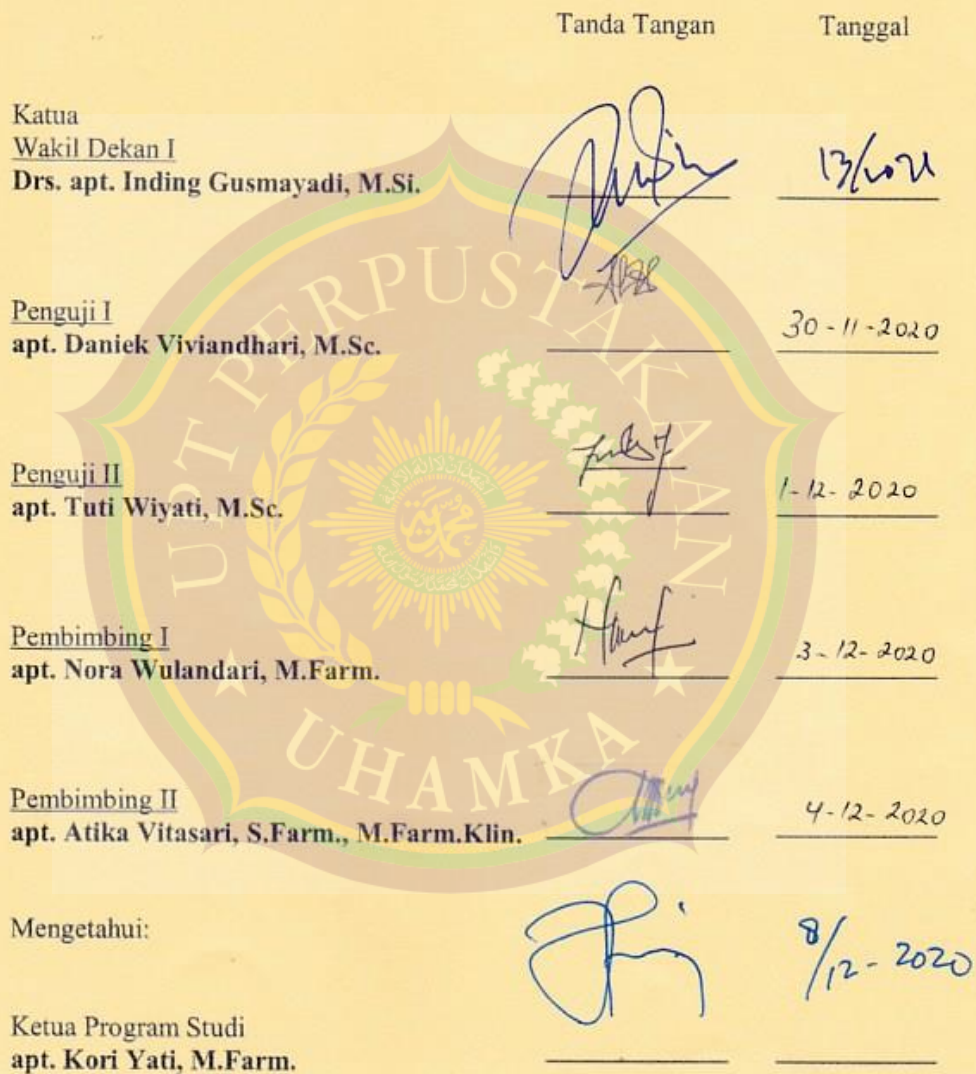 Tanda Tangan Tanggal
Katua
Wakil Dekan I
Drs. apt. Inding Gusmayadi, M.Si.
Penguji I
apt. Daniek Viviandhari, M.Sc.
30-11-2020
Penguji II
apt. Tuti Wiyati, M.Sc.
1-12-2020
Pembimbing I
apt. Nora Wulandari, M.Farm.
3-12-2020
Pembimbing II
apt. Atika Vitasari, S.Farm., M.Farm.Klin.
4-12-2020
Mengetahui:
8/12-2020
Ketua Program Studi
apt. Kori Yati, M.Farm.
UPT PERPUSTAKAAN
UHAMKA